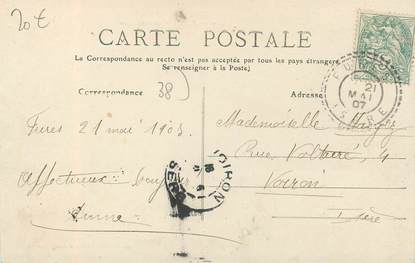 20 €
CARTE POSTALE
La Correspondance au recto n'est pas acceptée par tous les pays étrangers
(Se renseigner à la Poste)
Correspondance
38
Adresse
FURES
21
MAI
07
ISÈRE
Fures 21 mai 1907
Affectueux
Mademoiselle
Rue Voltaire, 4
Voiron
Isère
VOIRON